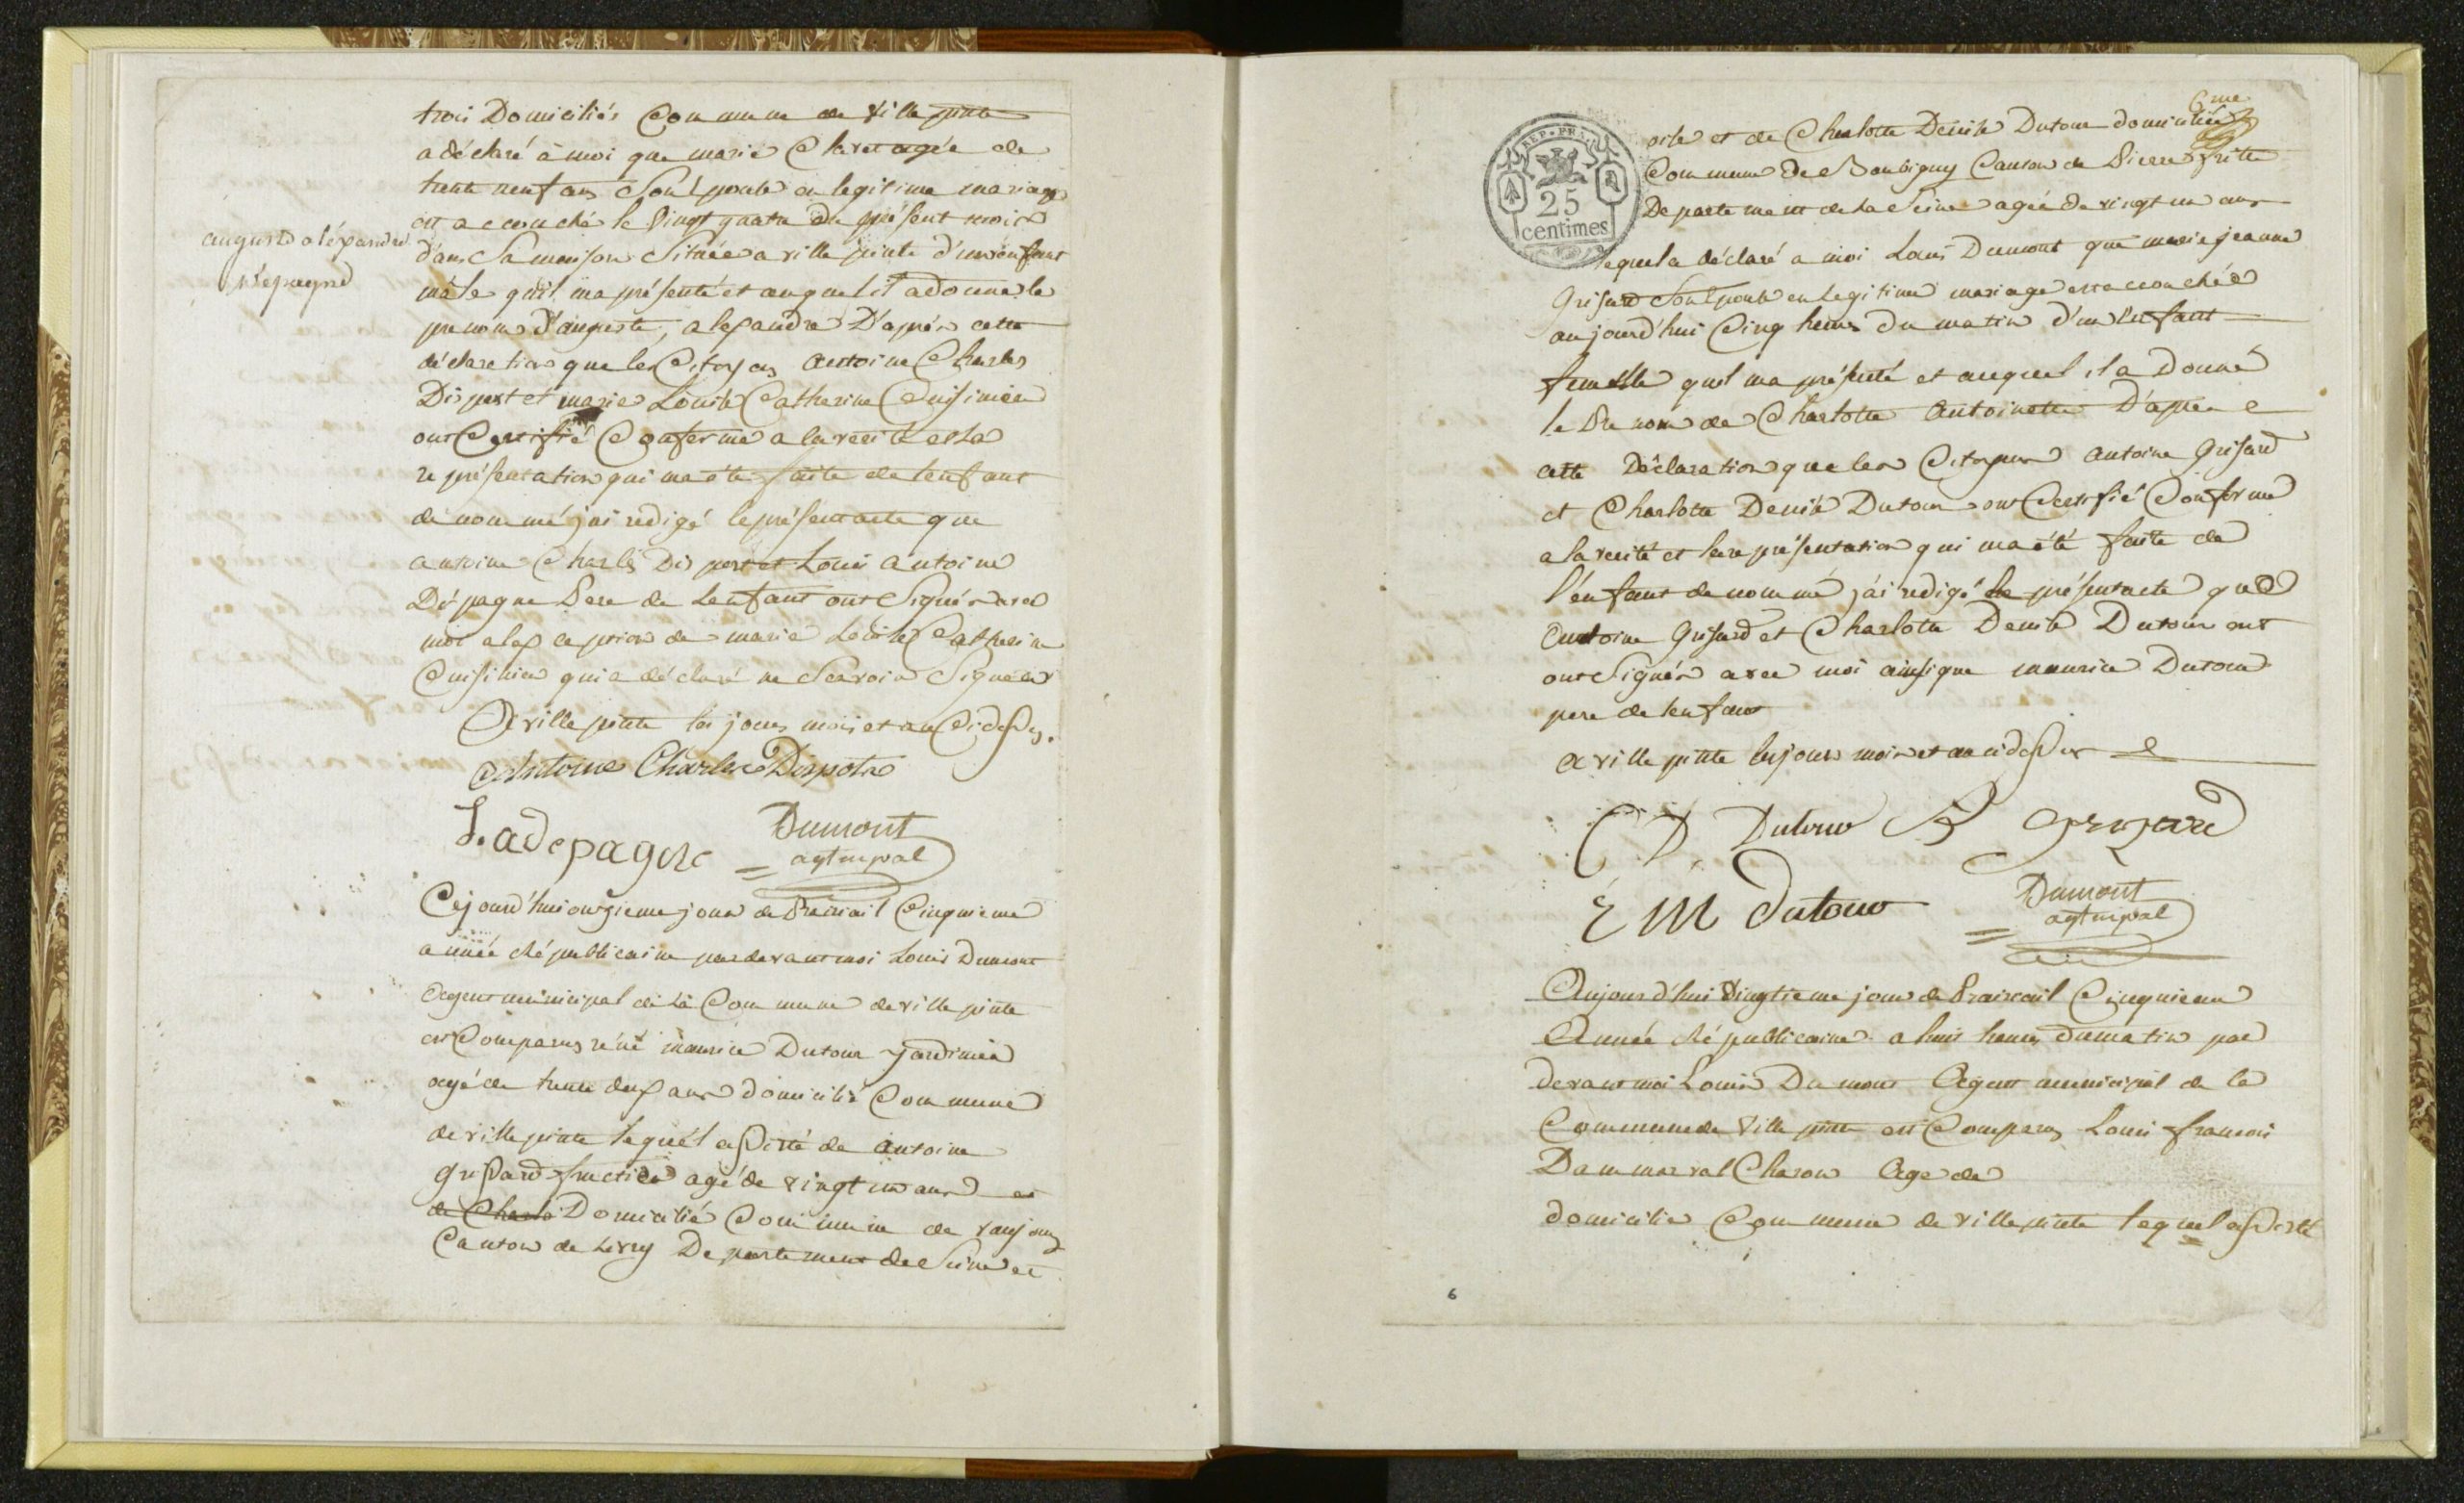 trois Domiciliés Commune de Ville pinte
a déclaré à moi que marie Claret agée de
trente neuf ans Son Epouse en legitime mariage
est accouché le Vingt quatre du présent mois
auguste aléxandre
Dépagne
dans Sa maison Située a ville pinte d'un enfant
mâle qu'il ma présenté et auquel il a donné le
prenom d'auguste, alexandre D'après cette
déclaration que les Citoyens antoine Charles
Dispost et marie Louise Catherine Cuisinier
ont Certifié Conforme a la verité et la
représentation qui ma été faite de lenfant
denommé j'ai redigé le présent acte que
antoine Charles Dispost et Louis antoine
Dépagne Pere de Lenfant ont Signés avec
moi a lexception de marie Louise Catherine
Cuisinier qui a déclaré ne Scavoir Signer
A ville pinte les jours mois et an Cidessus.
Antoine Charles Dispots
L. adepagne = Dumont
agt mpal
Cejourd'hui onzieme jour de Prairial Cinquieme
année Républicaine pardevant moi Louis Dumont
Agent municipal de la Commune de ville pinte
est Comparus réné maurice Dutour jardinier
agé de trente deux ans domicilié Commune
de ville pinte lequel assisté de antoine
Grisard fruitier agé de vingt un ans et
de Charlo Domicilié Commune de vaujour
Canton de Livry Departement de Seine et
6me
oise et de Charlotte Dénise Dutour domiciliée
REP. FRA.
25
centimes
Commune De Bonbigny Canton de Pierre fritte
Departement de la Seine agée de vingt un ans
lequel a déclaré a moi Louis Dumont que marie jeanne
Grisard Son Epouse en Legitime mariage est accouchée
aujourd'hui Cinq heures du matin d'un Enfant
femelle quil ma présenté et auquel il a Donné
le Prenom de Charlotte Antoinette D'après
cette Déclaration que les Citoyens Antoine Grisard
et Charlotte Dénise Dutour ont Certifié Conforme
a la verité et la représentation qui ma été faite de
l'énfant denommé j'ai redigé le présent acte que
Antoine Grisard et Charlotte Denise Dutour ont
ont Signés avec moi ainsi que maurice Dutour
pere de lenfant
A ville pinte les jours mois et an cidessus
C D Dutour A Grisard
R M dutour = Dumont
agt mpal
Aujourd'hui Vingtieme jour de Prairial Cinquieme
Année Républicaine a huit heures du matin par
devant moi Louis Dumont Agent municipal de la
Commune de Ville pinte est Comparus Louis francois
Dammarval Charon Age de
domicilié Commune de ville pinte lequel assisté
6